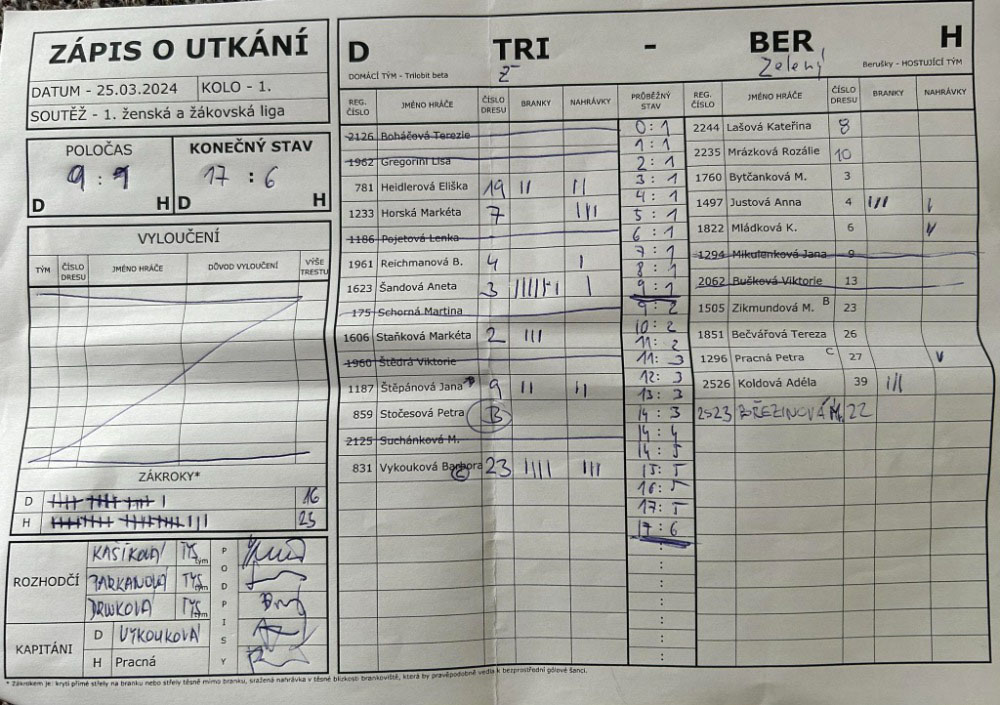 ZÁPIS O UTKÁNÍ
DATUM - 25.03.2024 KOLO - 1.
SOUTĚŽ - 1. ženská a žákovská liga
POLOČAS
9 : 1
D H
KONEČNÝ STAV
17 : 6
D H
VYLOUČENÍ
TÝM ČÍSLO DRESU JMÉNO HRÁČE DŮVOD VYLOUČENÍ VÝŠE TRESTU
ZÁKROKY*
D 16
H 23
ROZHODČÍ
KAŠÍKOVÁ TYS tým
TYS tým
TYS tým
PODPISY
KAPITÁNI
D VYKOUKOVÁ
H Pracná
D TRI - BER H
DOMÁCÍ TÝM - Trilobit beta Zelený Berušky - HOSTUJÍCÍ TÝM
REG. ČÍSLO JMÉNO HRÁČE ČÍSLO DRESU BRANKY NAHRÁVKY
2126 Boháčová Terezie
1962 Gregorini Lisa
781 Heidlerová Eliška 19 II II
1233 Horská Markéta 7 III
1186 Pojetová Lenka
1961 Reichmanová B. 4 I
1623 Šandová Aneta 3 I
175 Schorná Martina
1606 Staňková Markéta 2 III
1960 Štědrá Viktorie
1187 Štěpánová Jana 9 II II
859 Stočesová Petra B
2125 Suchánková M.
831 Vykouková Barbora C 23 IIII III
PRŮBĚŽNÝ STAV
0 : 1
1 : 1
2 : 1
3 : 1
4 : 1
5 : 1
6 : 1
7 : 1
8 : 1
9 : 1
9 : 2
10 : 2
11 : 2
11 : 3
12 : 3
13 : 3
14 : 3
14 : 4
14 : 5
15 : 5
16 : 5
17 : 5
17 : 6
:
:
:
:
:
REG. ČÍSLO JMÉNO HRÁČE ČÍSLO DRESU BRANKY NAHRÁVKY
2244 Lašová Kateřina 8
2235 Mrázková Rozálie 10
1760 Bytčanková M. 3
1497 Justová Anna 4 III I
1822 Mládková K. 6
1294 Mikulenková Jana 9
2062 Bušková Viktorie 13
1505 Zikmundová M. B 23
1851 Bečvářová Tereza 26
1296 Pracná Petra C 27
2526 Koldová Adéla 39 III
2523 BŘEZINOVÁ M. 22
* Zákrokem je: krytí přímé střely na branku nebo střely těsně mimo branku, sražená nahrávka v těsné blízkosti brankoviště, která by pravděpodobně vedla k bezprostřední gólové šanci.